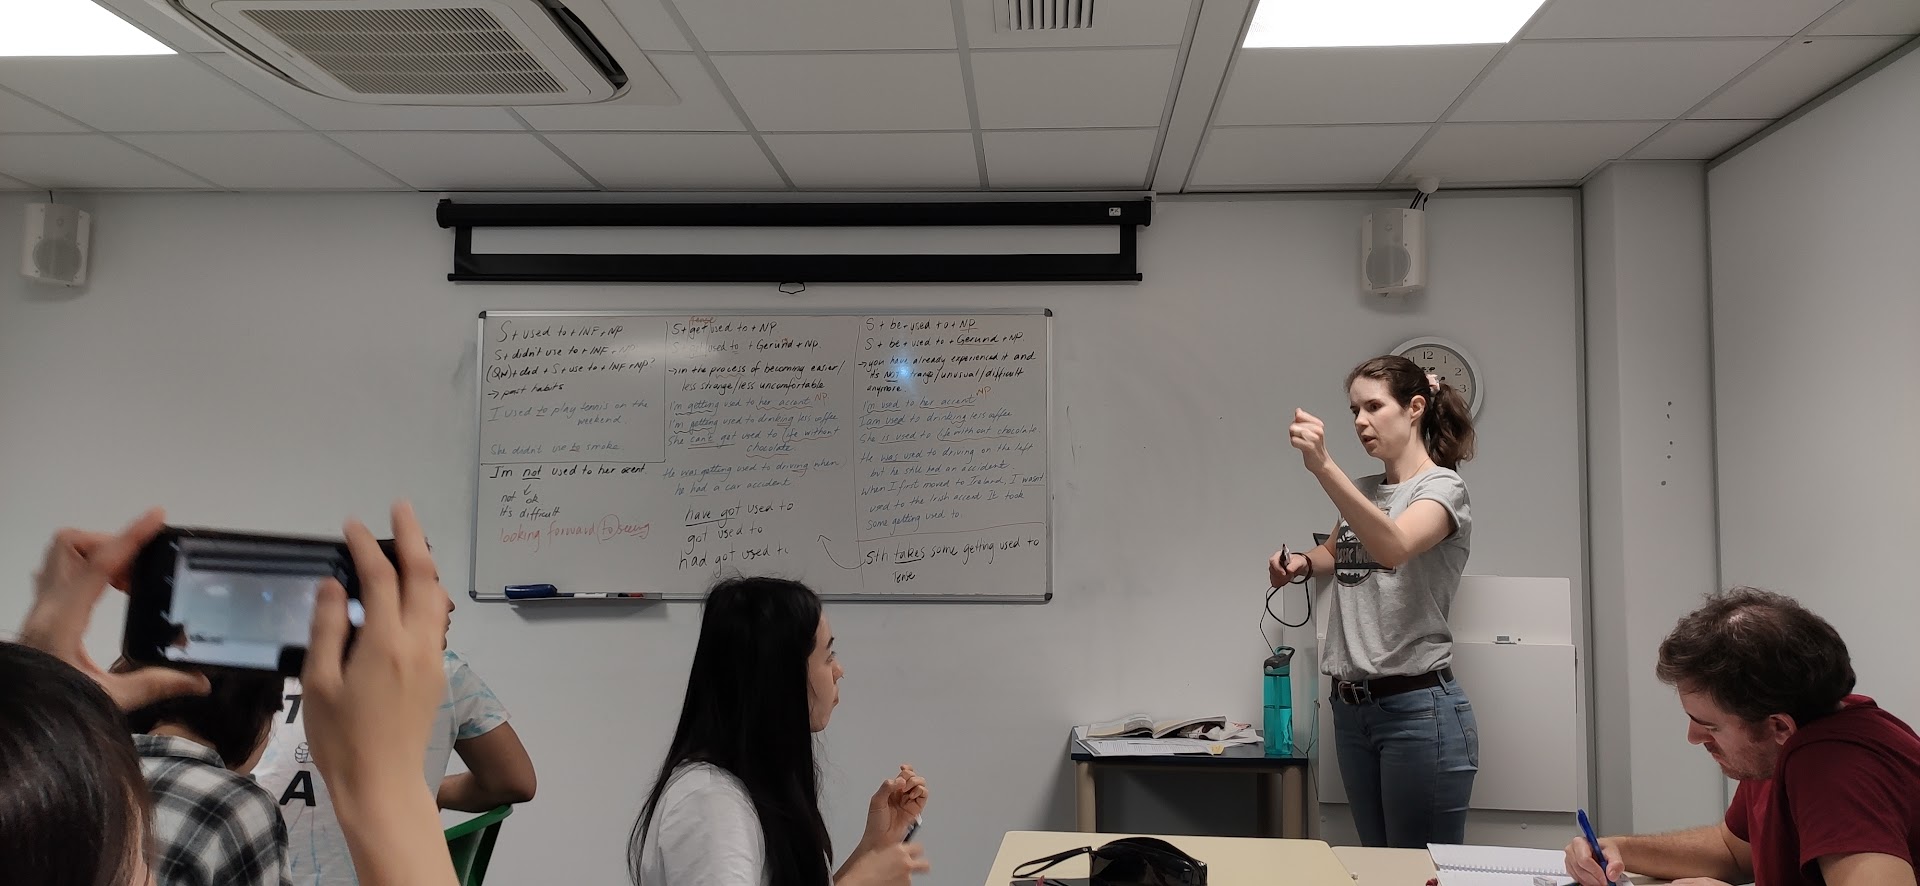 S + used to + INF + NP
S + didn't use to + INF + NP
(QW) + did + S + use to + INF + NP?
→ past habits
I used to play tennis on the
weekend.
She didn't use to smoke.
I'm not used to her accent.
not ok
It's difficult
looking forward to seeing
tense
S + get used to + NP
S + get used to + Gerund + NP.
→ in the process of becoming easier/
less strange/less uncomfortable
I'm getting used to her accent NP
I'm getting used to drinking less coffee
She can't get used to life without
chocolate.
He was getting used to driving when
he had a car accident.
have got used to
got used to
had got used to
S + be + used to + NP
S + be + used to + Gerund + NP.
→ you have already experienced it and
it's NOT strange/unusual/difficult
anymore
I'm used to her accent NP
I am used to drinking less coffee
She is used to life without chocolate.
He was used to driving on the left
but he still had an accident.
When I first moved to Ireland, I wasn't
used to the Irish accent. It took
some getting used to.
Sth takes some getting used to
Tense
T
A
12
3